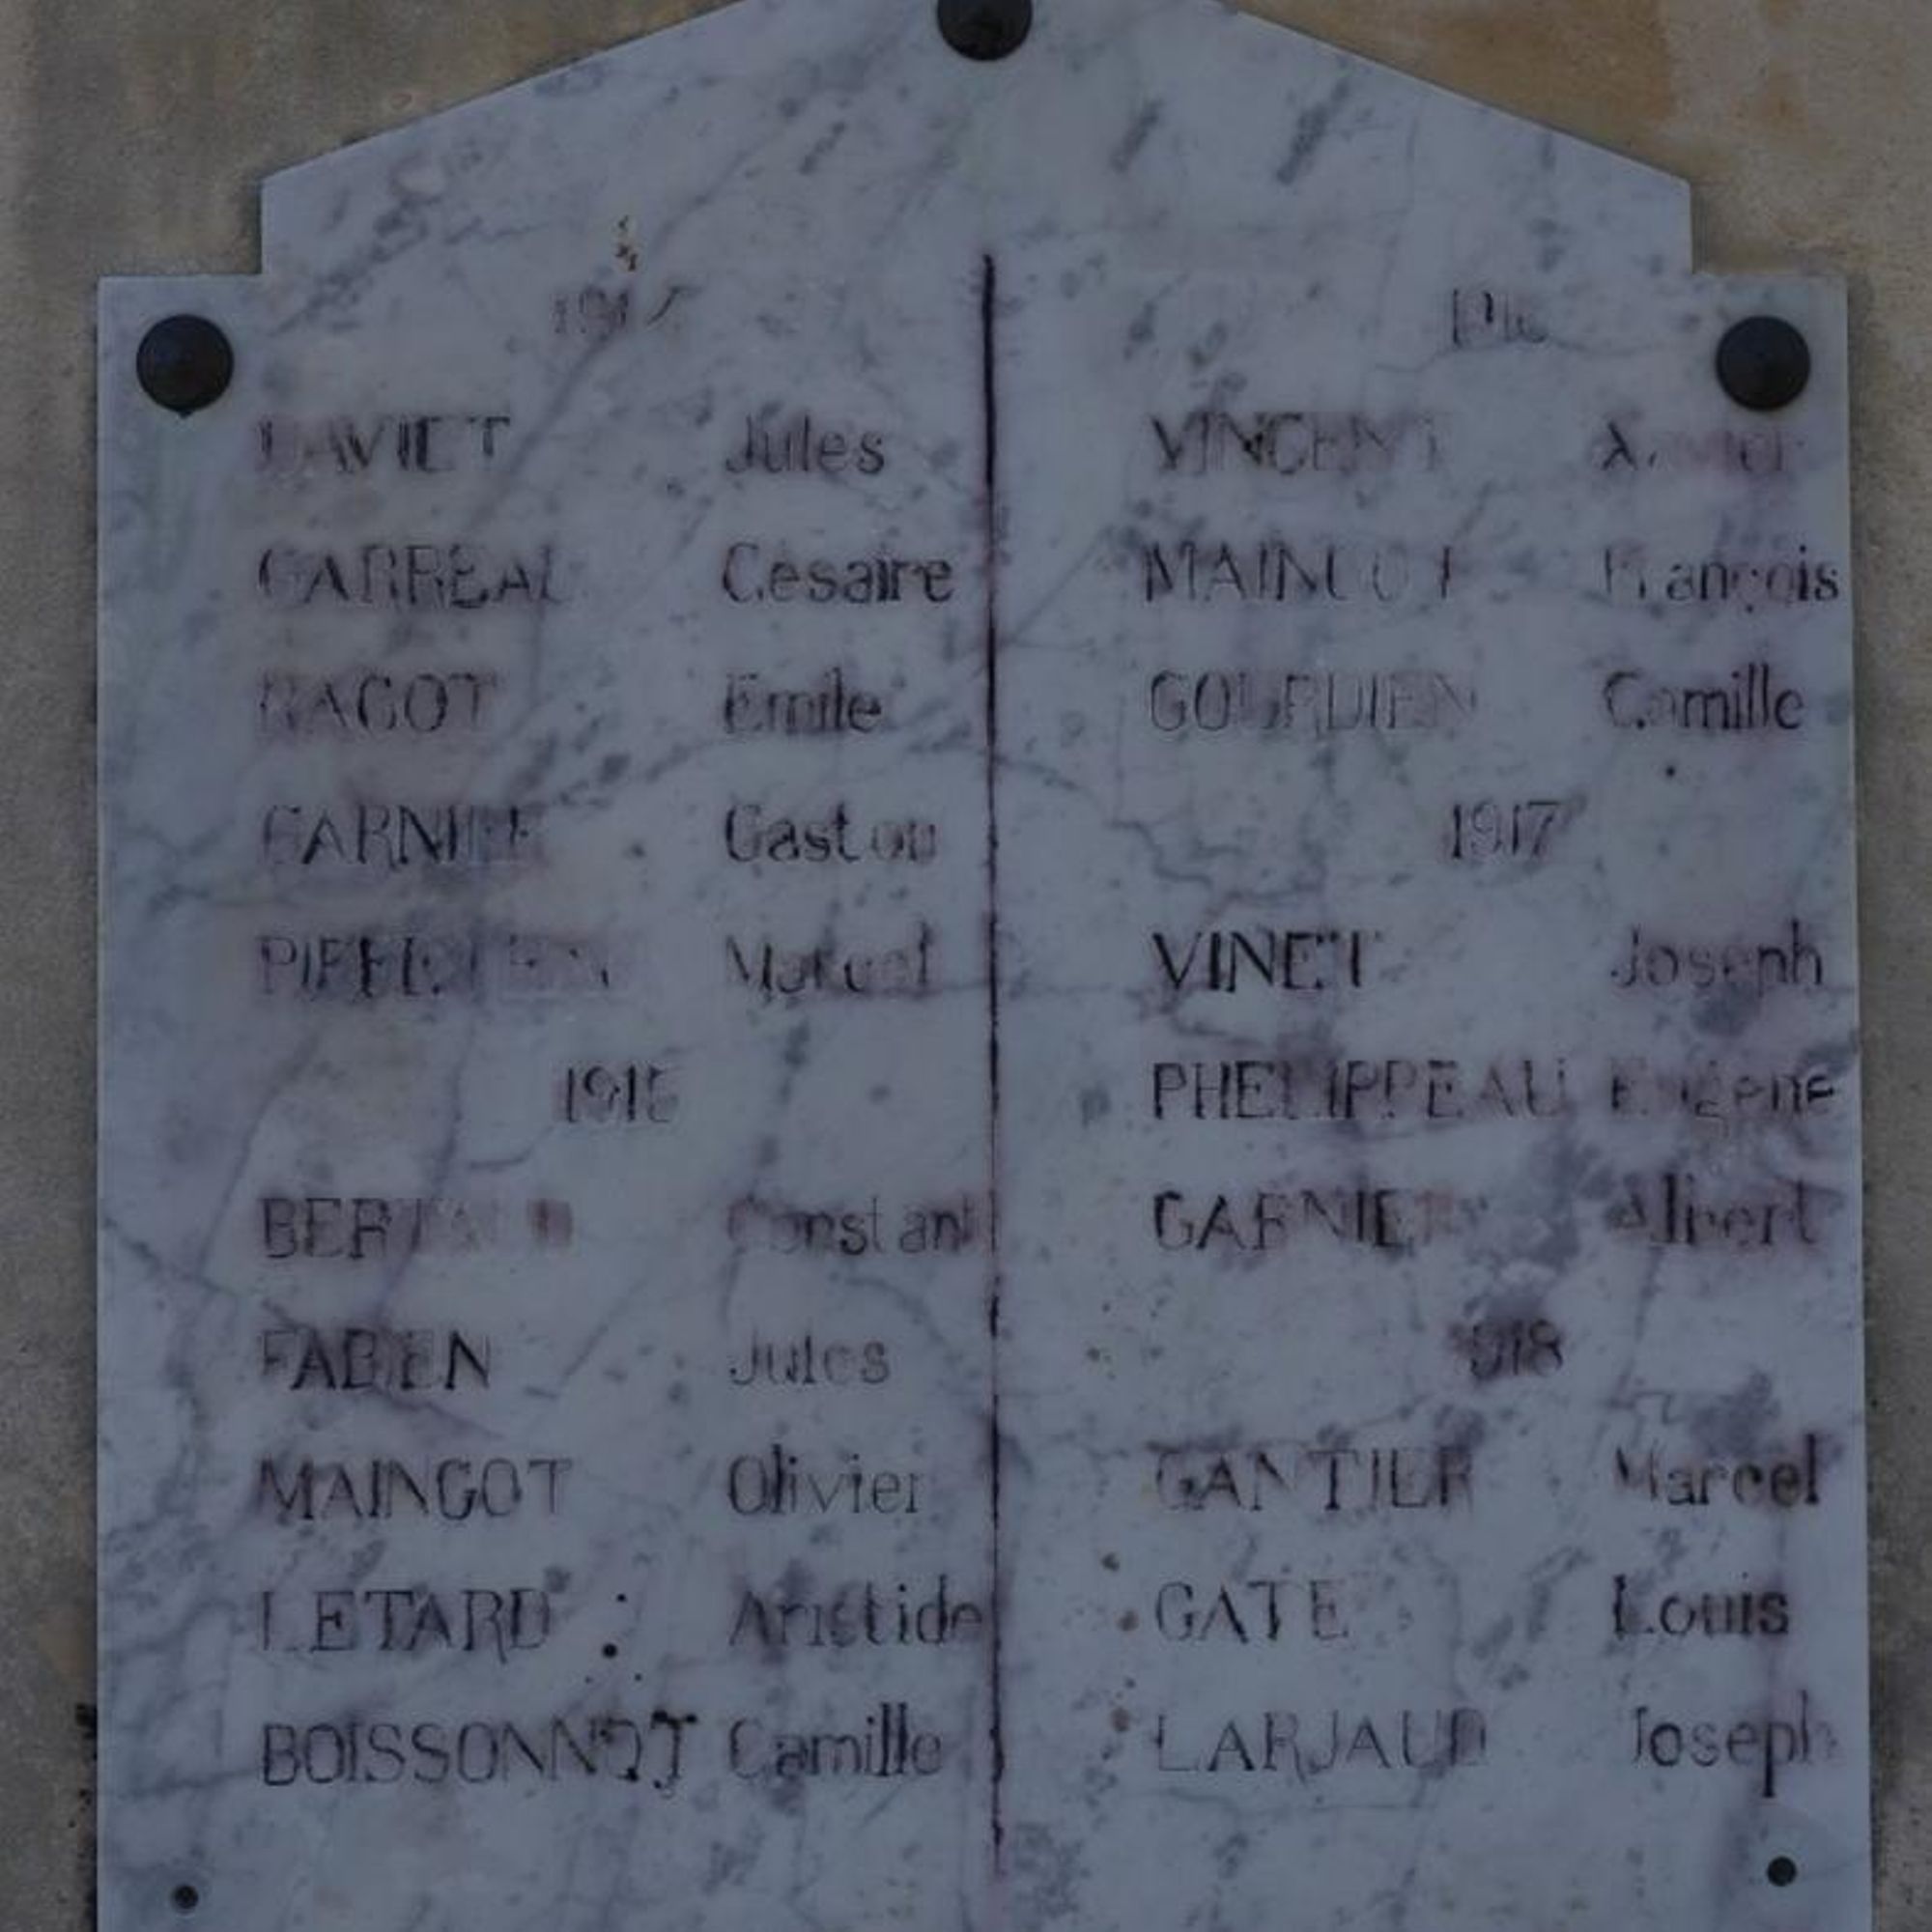 DAVIET Jules
GARREAU Cesaire
RAGOT Emile
GARNIER Gaston
Marcel
1915
Constant
FABIEN Jules
MAINGOT Olivier
LETARD Aristide
BOISSONNOT Camille
1916
VINCENT Xavier
MAINGOT François
GOURDIEN Camille
1917
VINET Joseph
PHELIPPEAU Eugène
GARNIER Albert
1918
GANTIER Marcel
GATE Louis
LARJAUD Joseph